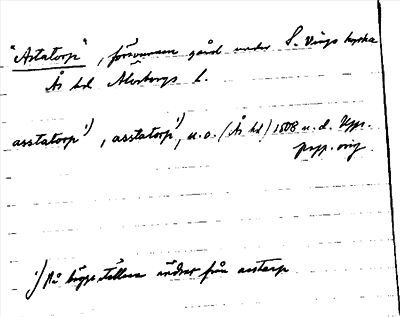 "Astatorp", försvunnen gård under S. Vings kyrka
Ås hd Älvsborgs l.
asstatorp¹), asstatorp¹), u.o. (Ås hd) 1508 u.d. Upps.
papp. orig.
¹) På bägge ställena ändrat från asstarp